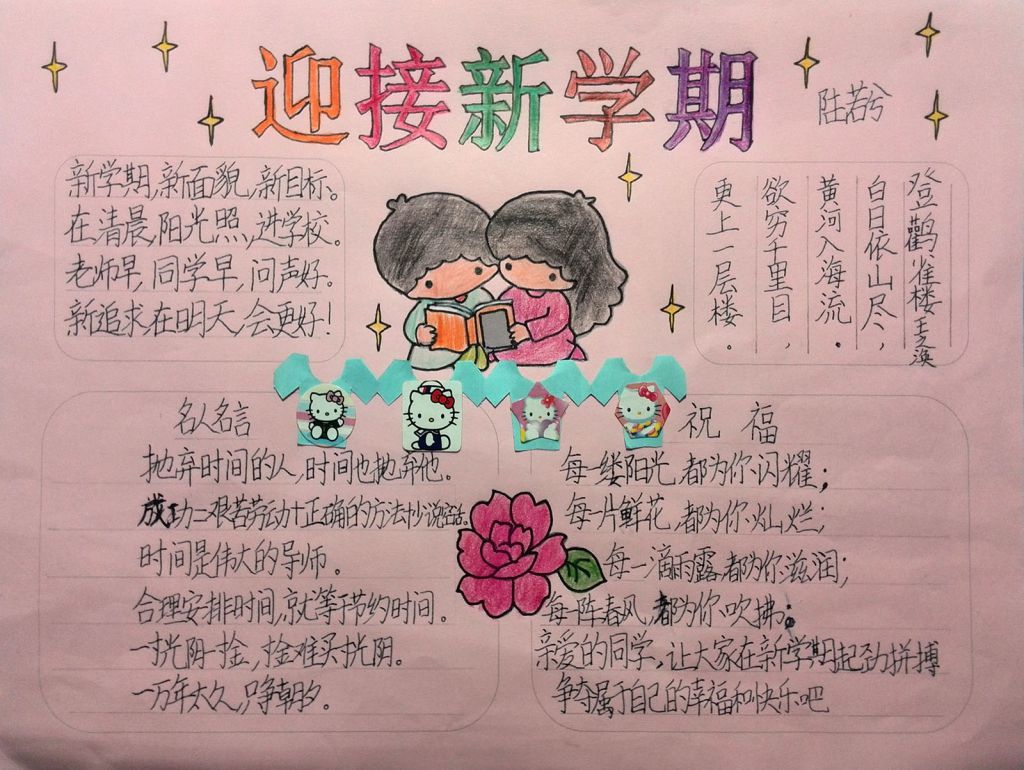 迎接新学期
陆若兮
新学期,新面貌,新目标。
在清晨,阳光照,进学校。
老师早,同学早,问声好。
新追求在明天,会更好!
登鹳雀楼 王之涣
白日依山尽,
黄河入海流。
欲穷千里目,
更上一层楼。
名人名言
抛弃时间的人,时间也抛弃他。
成功=艰苦劳动+正确的方法+少说空话。
时间是伟大的导师。
合理安排时间,就等于节约时间。
一寸光阴一寸金,寸金难买寸光阴。
一万年太久,只争朝夕。
祝福
每一缕阳光,都为你闪耀;
每一片鲜花,都为你灿烂;
每一滴雨露,都为你滋润;
每一阵春风,都为你吹拂;
亲爱的同学,让大家在新学期起劲拼搏
争夺属于自己的幸福和快乐吧